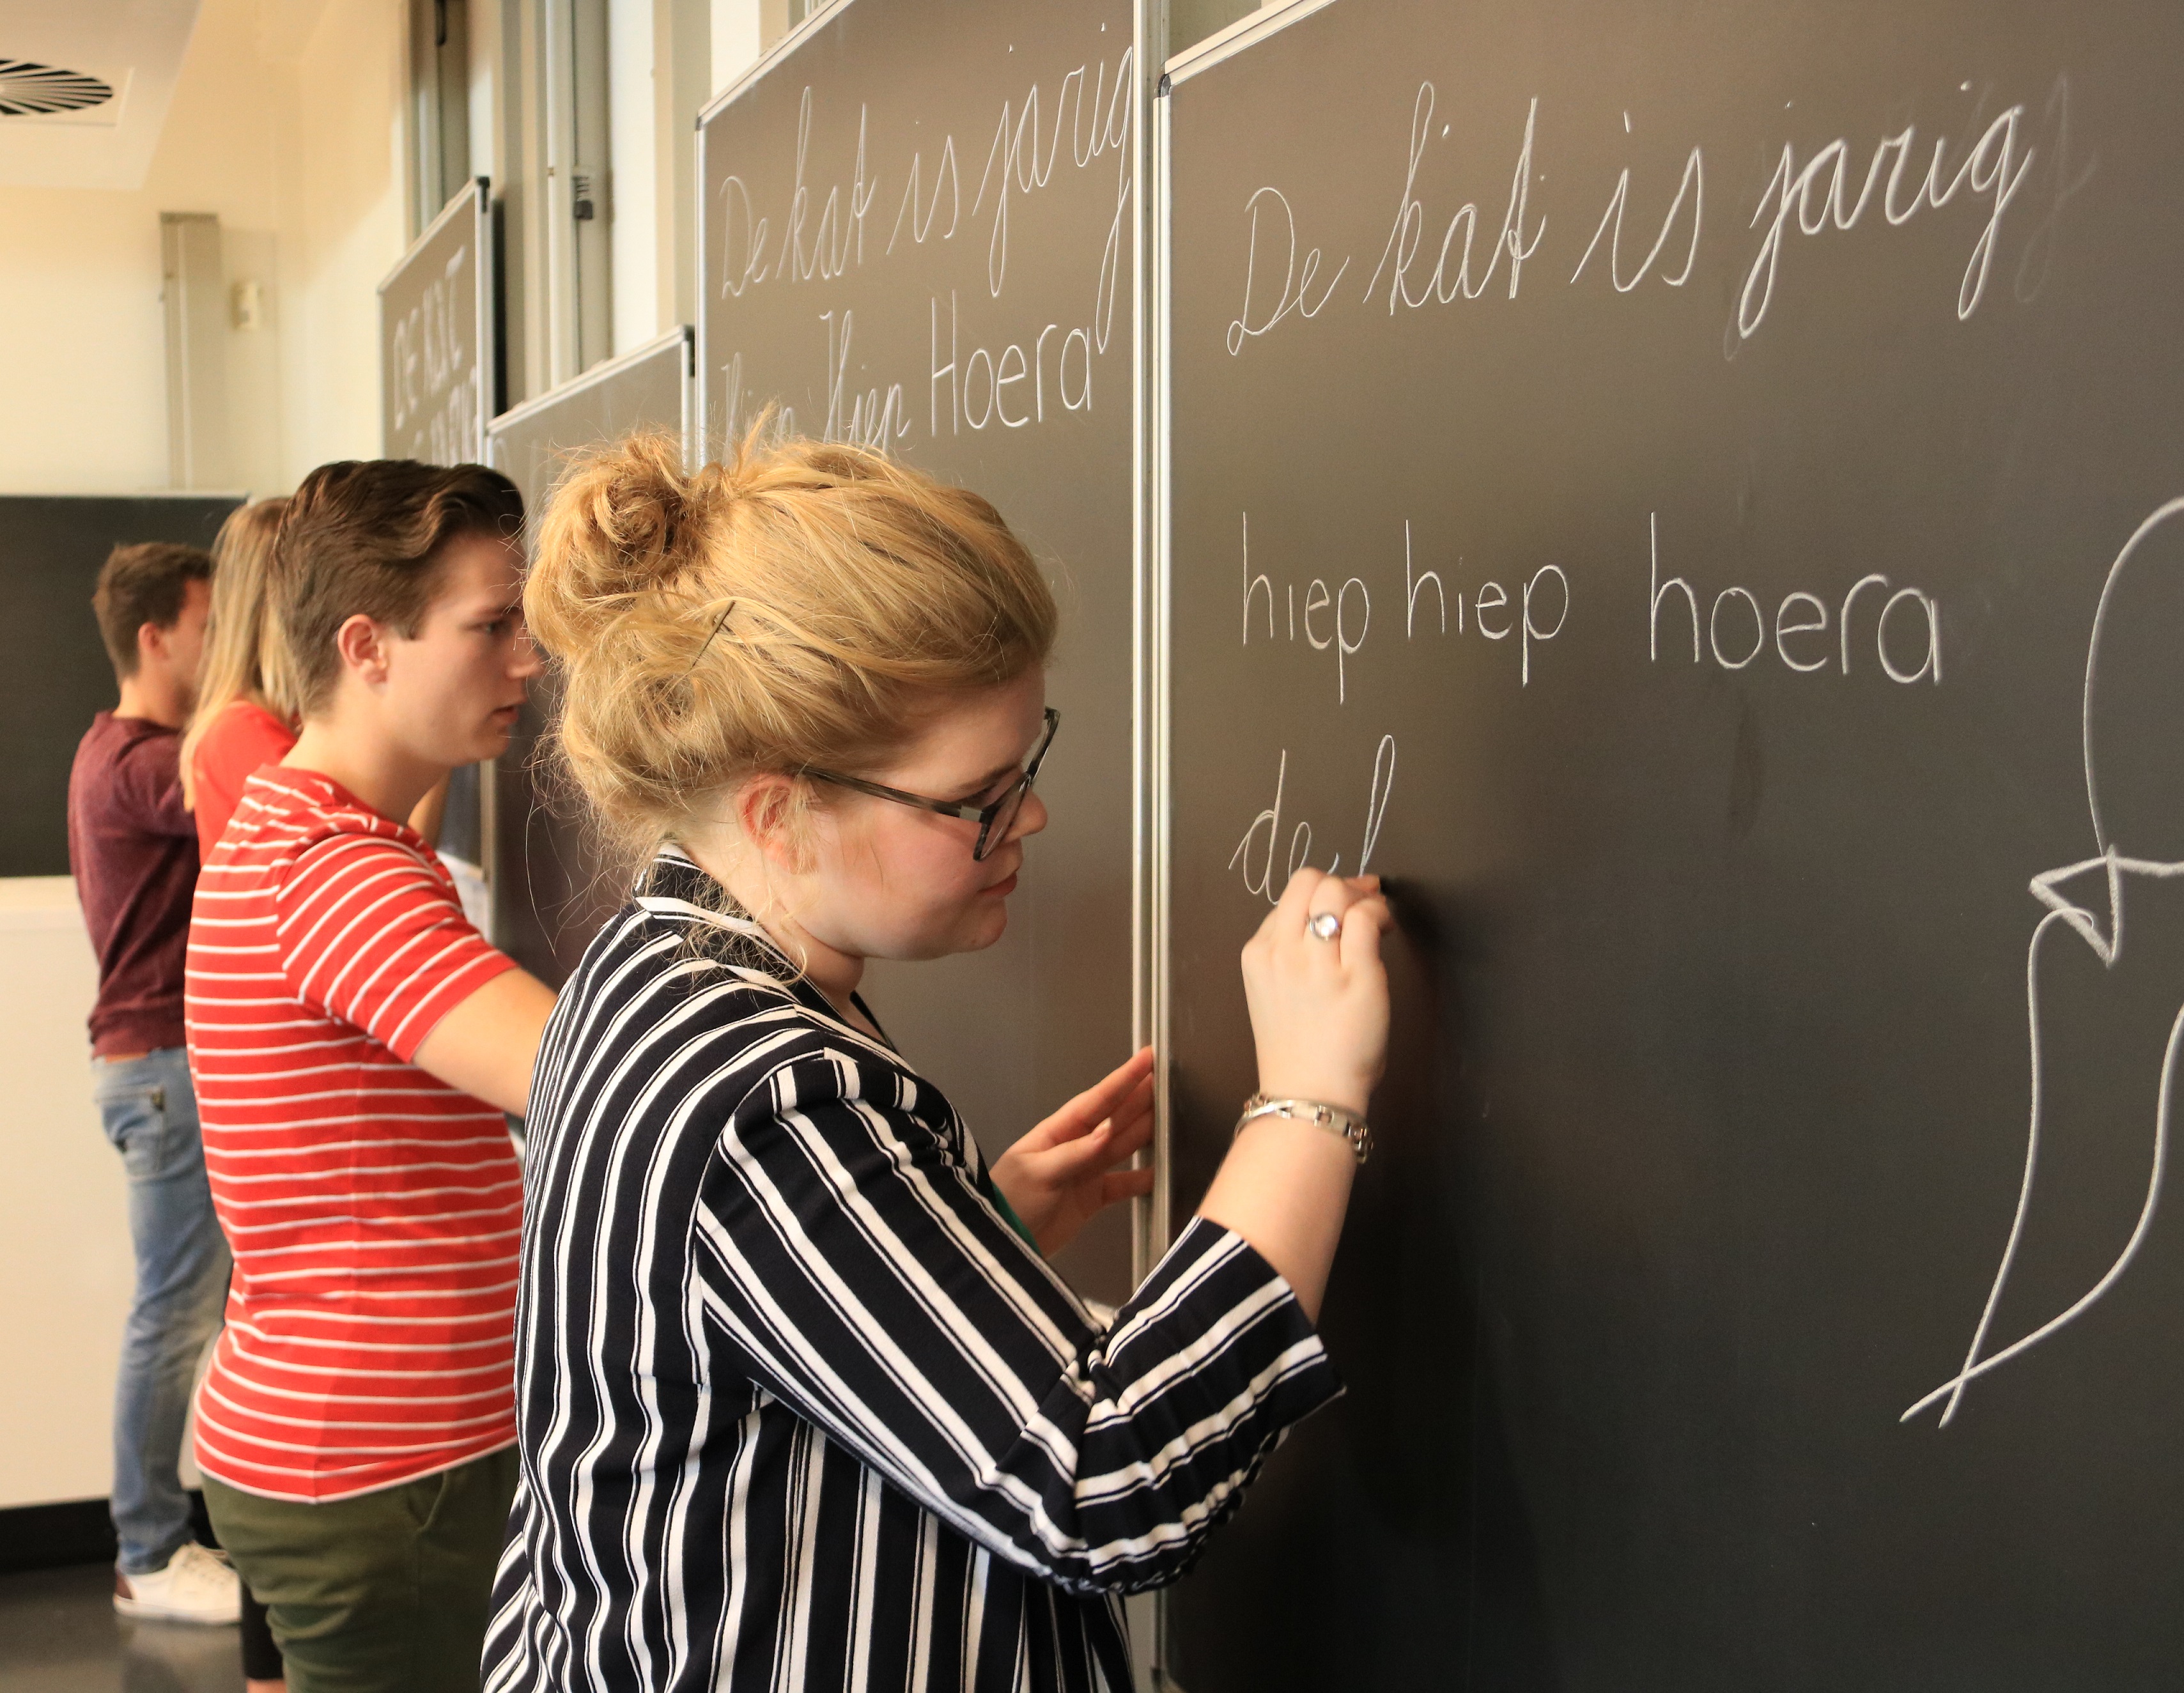 DE KAT
De kat is jarig
Hiep Hiep Hoera
De kat is jarig
hiep hiep hoera
de